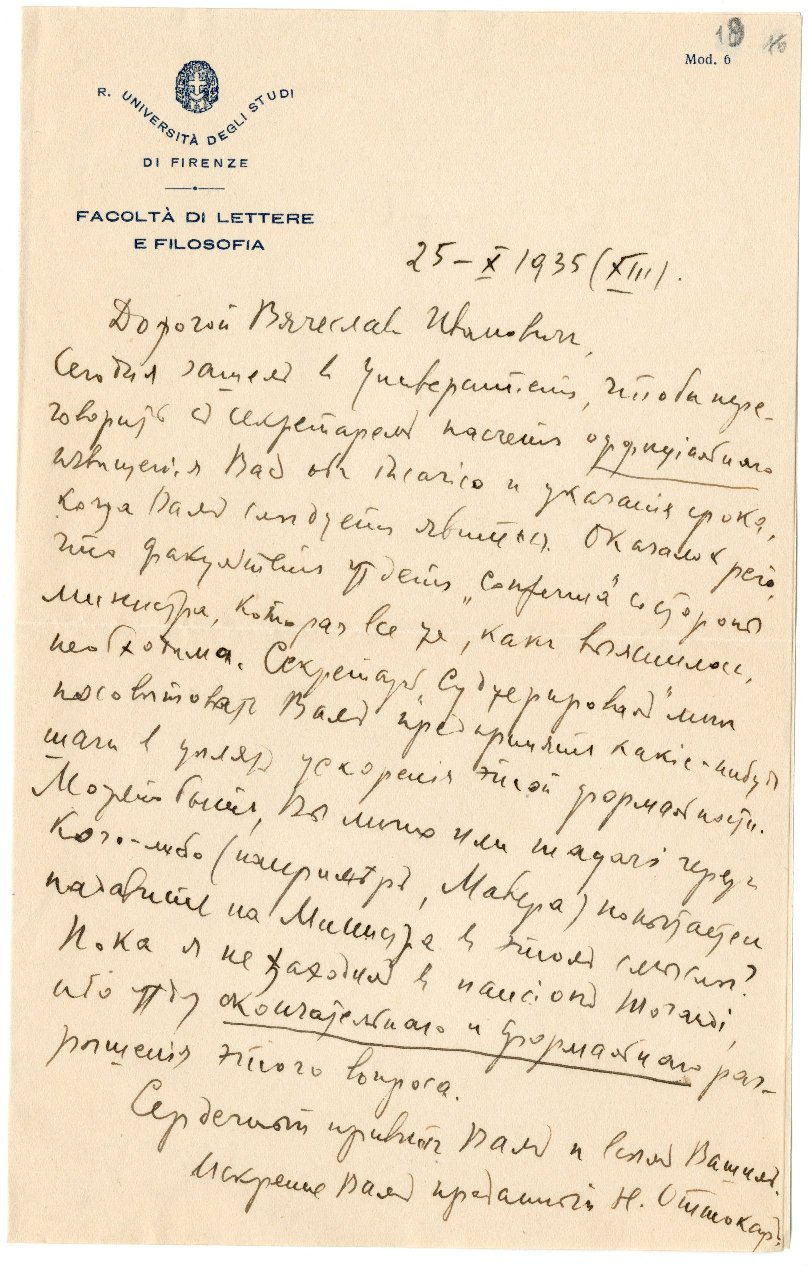 18
Mod. 6
R. UNIVERSITÀ DEGLI STUDI
DI FIRENZE
FACOLTÀ DI LETTERE
E FILOSOFIA
25–X 1935 (XIII).
Дорогой Вячеслав Иванович,
Сегодня зашел в Университетъ, чтобы пере-
говорить съ секретаремъ насчетъ оффиціальнаго
извѣщенія Васъ объ incarico и указанія срока,
когда Вамъ слѣдуетъ явиться. Оказалось
что факультетъ ждетъ „conferma“ со стороны
министра, которая все же, какъ выяснилось,
необходима. Секретарь „суджерировалъ“ мнѣ
посовѣтовать Вамъ предпринять какіе-нибудь
шаги въ цѣляхъ ускоренія этой формальности.
Можетъ быть, Вы лично или черезъ
кого-либо (напримѣръ, Мавера) попытаетесь
надавить на Министра въ этомъ смыслѣ?
Пока я не заходилъ въ пансіонъ
ибо жду окончательнаго и формальнаго раз-
рѣшенія этого вопроса.
Сердечный привѣтъ Вамъ и всѣмъ Вашимъ.
Искренне Вамъ преданный Н. Оттокаръ.